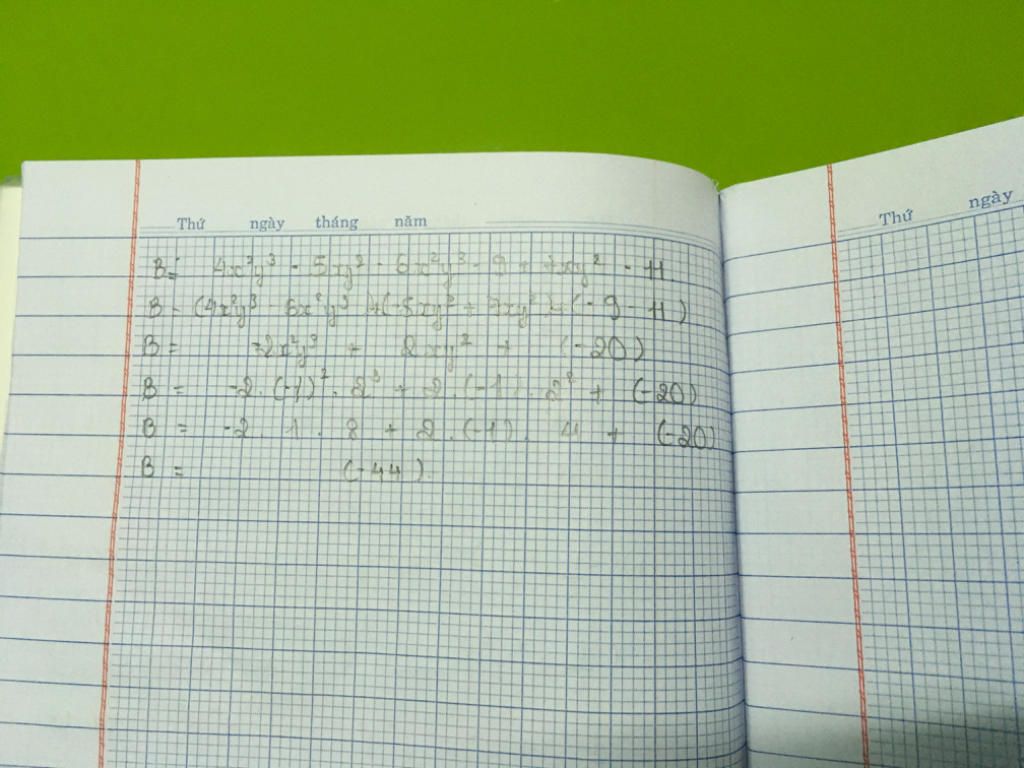 Thứ ngày tháng năm
Thứ ngày
B = 4x²y³ - 5xy² - 6x²y³ - 9 + 7xy² - 11
B = (4x²y³ - 6x²y³) + (-5xy² + 7xy²) + (-9 - 11)
B = -2x²y³ + 2xy² + (-20)
B = -2 . (-1)² . 2³ + 2 . (-1) . 2² + (-20)
B = -2 . 1 . 8 + 2 . (-1) . 4 + (-20)
B = (-44).